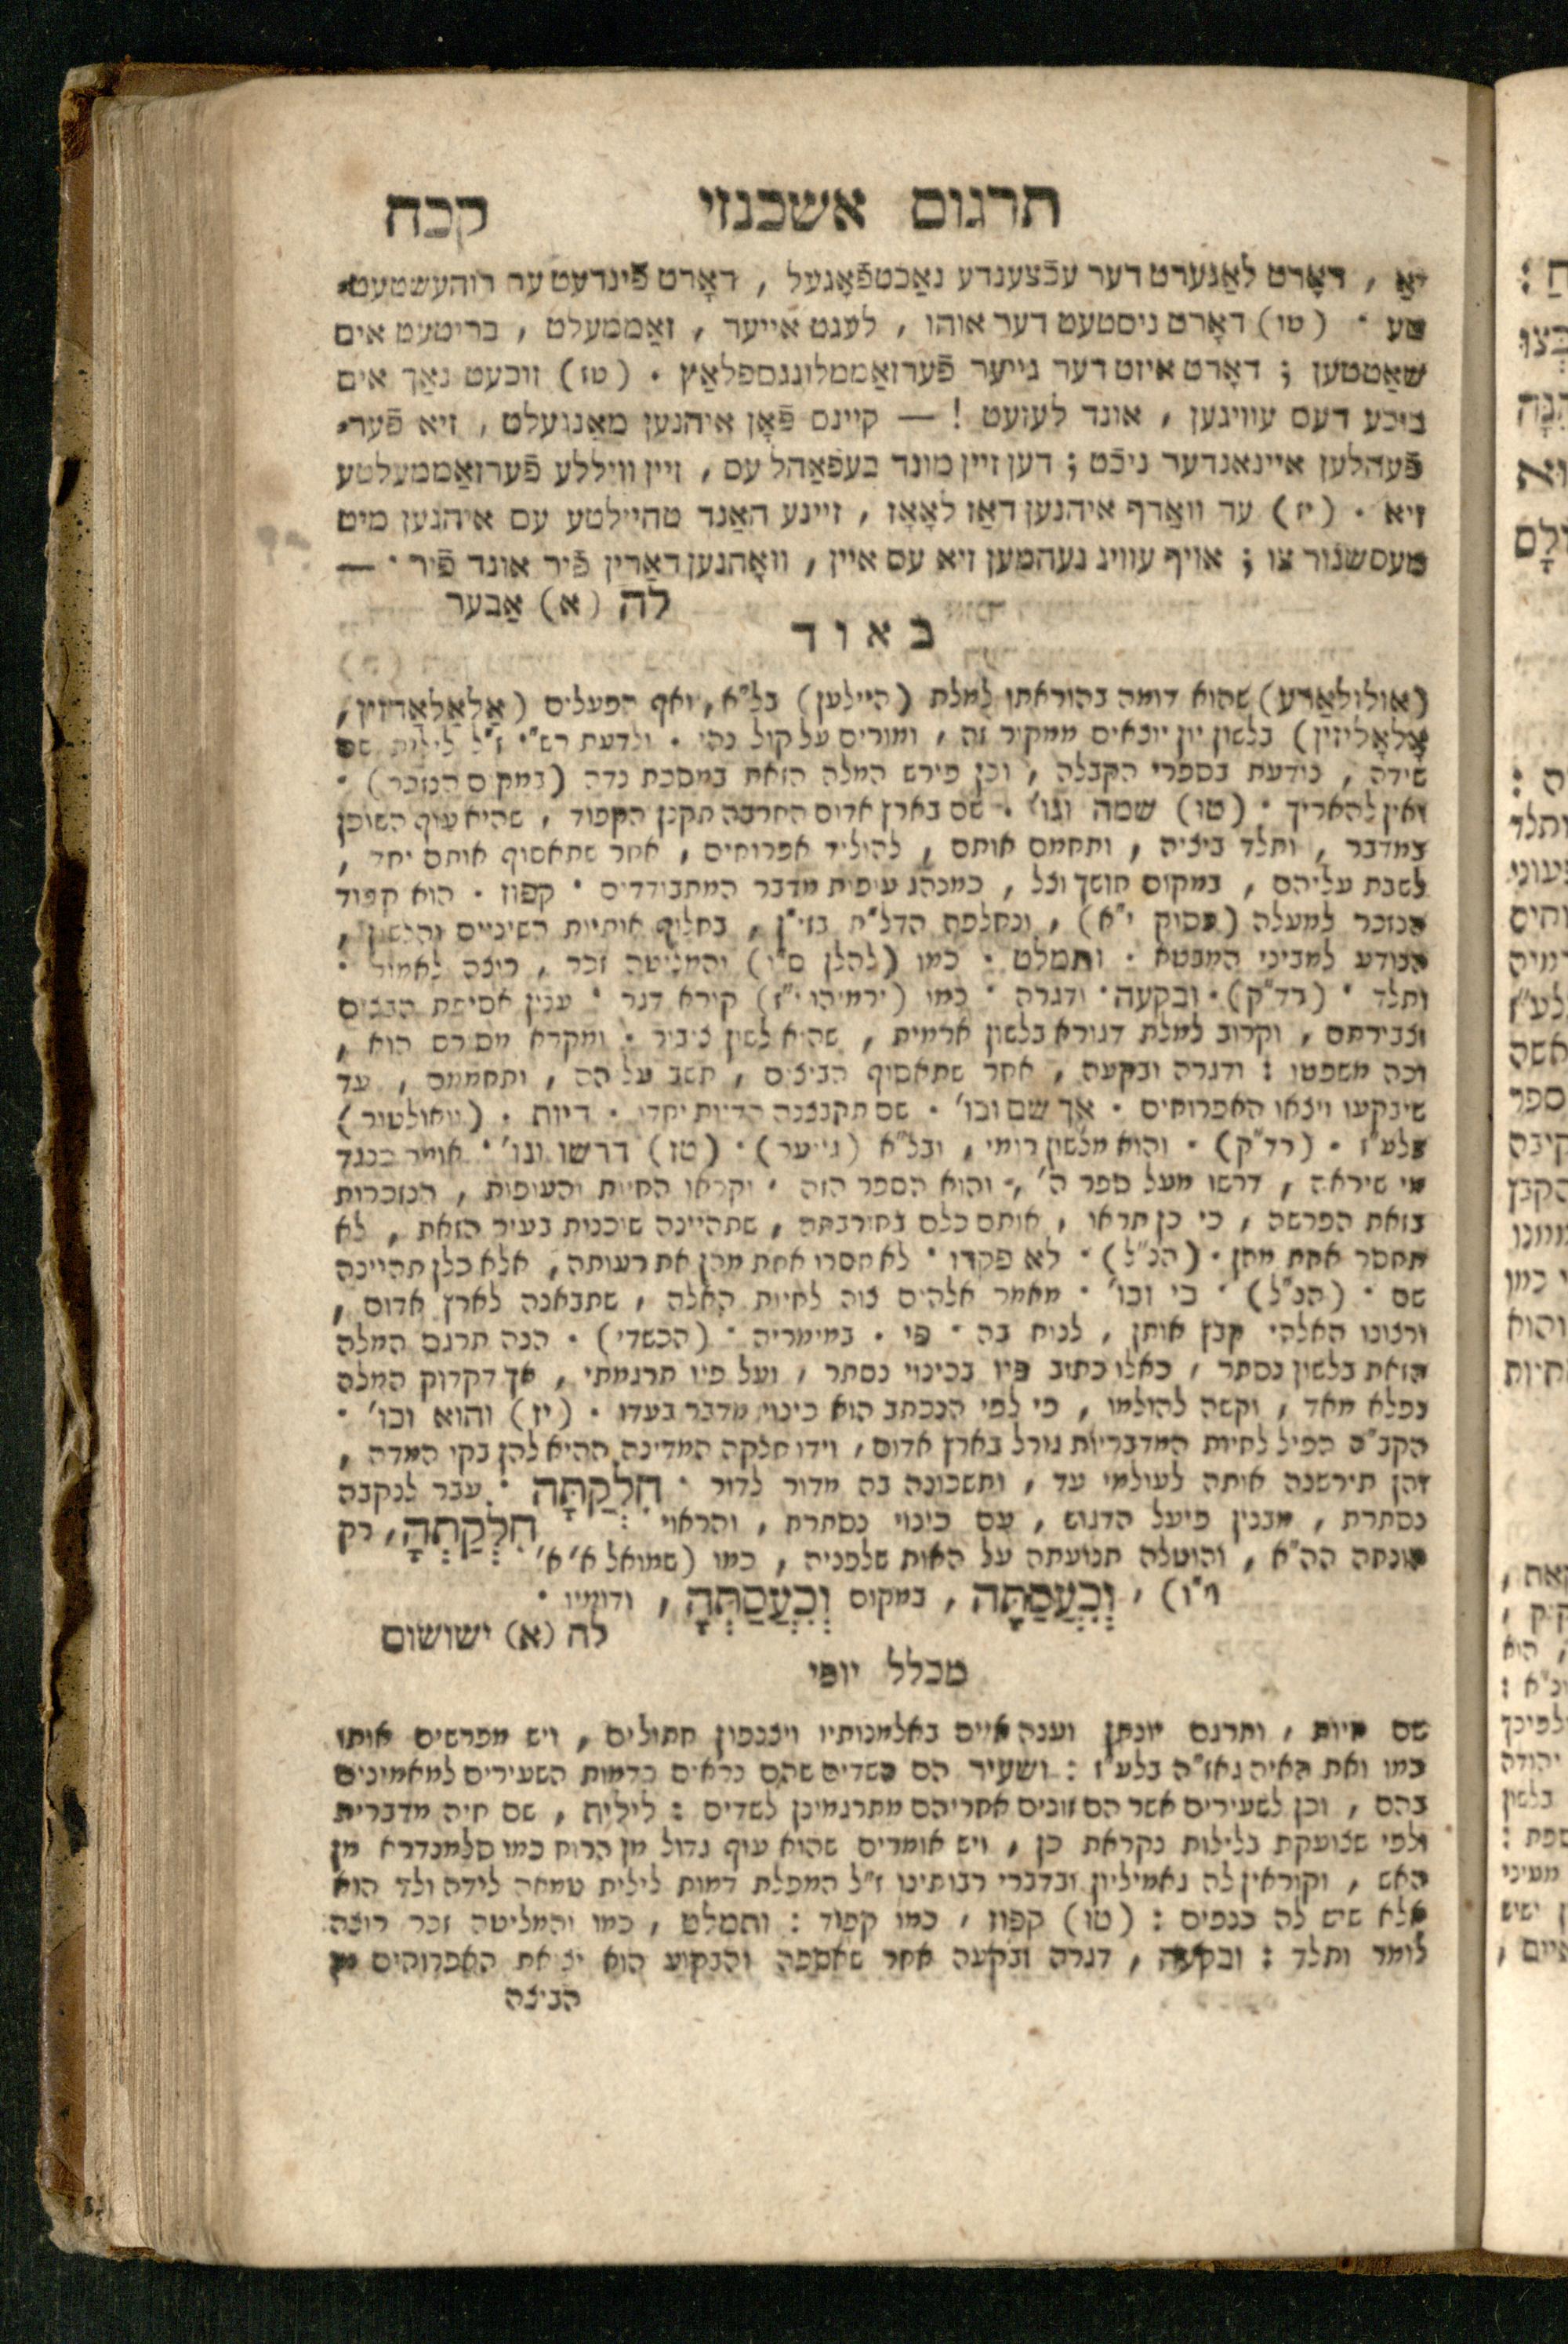 תרגום אשכנזי קכח
יאַ , דאָרט לאַגערט דער עכֿצענדע נאַכטפֿאָגעל , דאָרט פֿינדעט ער רוהעשטעט־
טע · (טו) דאָרט ניסטעט דער אוהו , לעגט אייער , זאַממעלט , בריטעט אים
שאַטטען ; דאָרט איזט דער גייער פֿערזאַממלונגספלאַץ · (טז) זוכעט נאַך אים
בוכע דעס עוויגען , אונד לעזעט ! — קיינס פֿאָן איהנען מאַנגעלט , זיא פֿער־
פֿעהלען איינאנדער ניכֿט ; דען זיין מונד בעפֿאַהל עס , זיין ווילללע פֿערזאַממעלטע
זיא · (יז) ער וואַרף איהנען דאַז לאָאָז , זיינע האַנד טהיילטע עס איהנען מיט
מעסשנור צו ; אויף עוויג נעהמען זיא עס איין , וואָהנען דאַרין פֿיר אונד פֿיר · —
לה (א) אַבער
באור
(אולולאַרע) שהוא דומה בהוראתו למלת (היילען) בל״א , ואף הפעלים (אַלאַלאַזיין ,
אָלאָליזין) בלשון יון יוצאים ממקור זה , ומורים על קול נהי · ולדעת רש״י ז״ל לילית שם
שידה , נודעת בספרי הקבלה , וכן פירש המלה הזאת במסכת נדה (במקום הנזכר) ·
ואין להאריך · (טו) שמה וגו׳ · שם בארץ אדום החרבה תקנן הקפוד , שהיא עוף השוכן
במדבר , ותלד ביציה , ותחמם אותם , להוליד אפרוחים , אחר שתאסוף אותם יחד ,
לשבת עליהם , במקום חושך וצל , כמנהג עופות מדבר המתבודדים · קפוז · הוא קפוד
הנזכר למעלה (פסוק י״א) , ונחלפה הדל״ת בזי״ן , בחלוף אותיות השיניים והלשון ,
הנודע למביני המבטא · ותמלט · כמו (להלן ס״ו) והמליטה זכר , רוצה לאמור ·
ותלד · (רד״ק) · ובקעה · ודגרה · כמו (ירמיהו י״ז) קורא דגר · ענין אסיפת הבצים
וצבירתם , וקרוב למלת דגורא בלשון ארמית , שהוא לשון ציבור · ומקרא מסורס הוא ,
וכה משפטו : ודגרה ובקעה , אחר שתאסוף הביצים , תשב עליהם , ותחממם , עד
שיבקעו ויצאו האפרוחים · אך שם וכו׳ · שם תקבצנה הדיות יחדו · דיות · (וואולטור)
בלע״ז · (רד״ק) · והוא מלשון רומי , ובל״א (גייער) · (טז) דרשו וגו׳ · אומר כנגד
מי שיראה , דרשו מעל ספר ה׳ , והוא הספר הזה · וקראו החיות והעופות , הנזכרות
בזאת הפרשה , כי כן תראו , אותם כלם בחורבתה , שתהיינה שוכנות בעיר הזאת , לא
תחסר אחת מהן · (הנ״ל) · לא פקדו · לא חסרו אחת מהן את רעותה , אלא כלן תהיינה
שם · (הנ״ל) · כי וכו׳ · מאמר אלהים צוה לחיות האלה , שתבאנה לארץ אדום ,
ורצונו האלהי קבץ אותן , לנוח בה · פי · במימריה · (הכשדי) · הנה תרגם המלה
הזאת בלשון נסתר , כאלו כתוב פיו בכינוי נסתר , ועל פיו תרגמתי , אך דקדוק המלה
נפלא מאד , וקשה להולמו , כי לפי הנכתב הוא כינוי מדבר בעדו · (יז) והוא וכו׳ ·
הקב״ה הפיל לחיות המדבריות גורל בארץ אדום , וידו חלקה המדינה ההיא להן בקו המדה ,
והן תירשנה אותה לעולמי עד , ותשכונה בה מדור לדור · חִלְּקַתָּה · עבר לנקבה
נסתרת , מבנין פיעל הדגוש , עם כינוי נסתרת , והראוי חִלְּקַתְהָ , רק
שנחה הה״א , והוטלה תנועתה על האות שלפניה , כמו (שמואל א׳ א׳
ו״ו) , וְכִעֲסַתָּה , במקום וְכִעֲסַתְּהָ , ודומיו ·
לה (א) ישושום
מכלל יופי
שם חיות , ותרגם יונתן וענה איים באלמנותיו ויצנפון חתולים , ויש מפרשים אותו
כמו ואת האיה גאז״ה בלע״ז : ושעיר הם השדים שהם נראים כדמות השעירים למאמינים
בהם , וכן לשעירים אשר הם זונים אחריהם מתרגמינן לשדים : לילית , שם חיה מדברית
ולפי שצועקת בלילות נקראת כן , ויש אומרים שהוא עוף גדול מן הרוח כמו סלמנדרא מן
האש , וקוראין לה גאמיליון ובדברי רבותינו ז״ל המפלת דמות לילית טמאה לידה ולד הוא
אלא שיש לה כנפים : (טו) קפוז , כמו קפוד : ותמלט , כמו והמליטה זכר רוצה
לומר ותלד : ובקעה , דגרה ובקעה אחר שאספה והבקוע הוא יציאת האפרוחים מן
הביצה